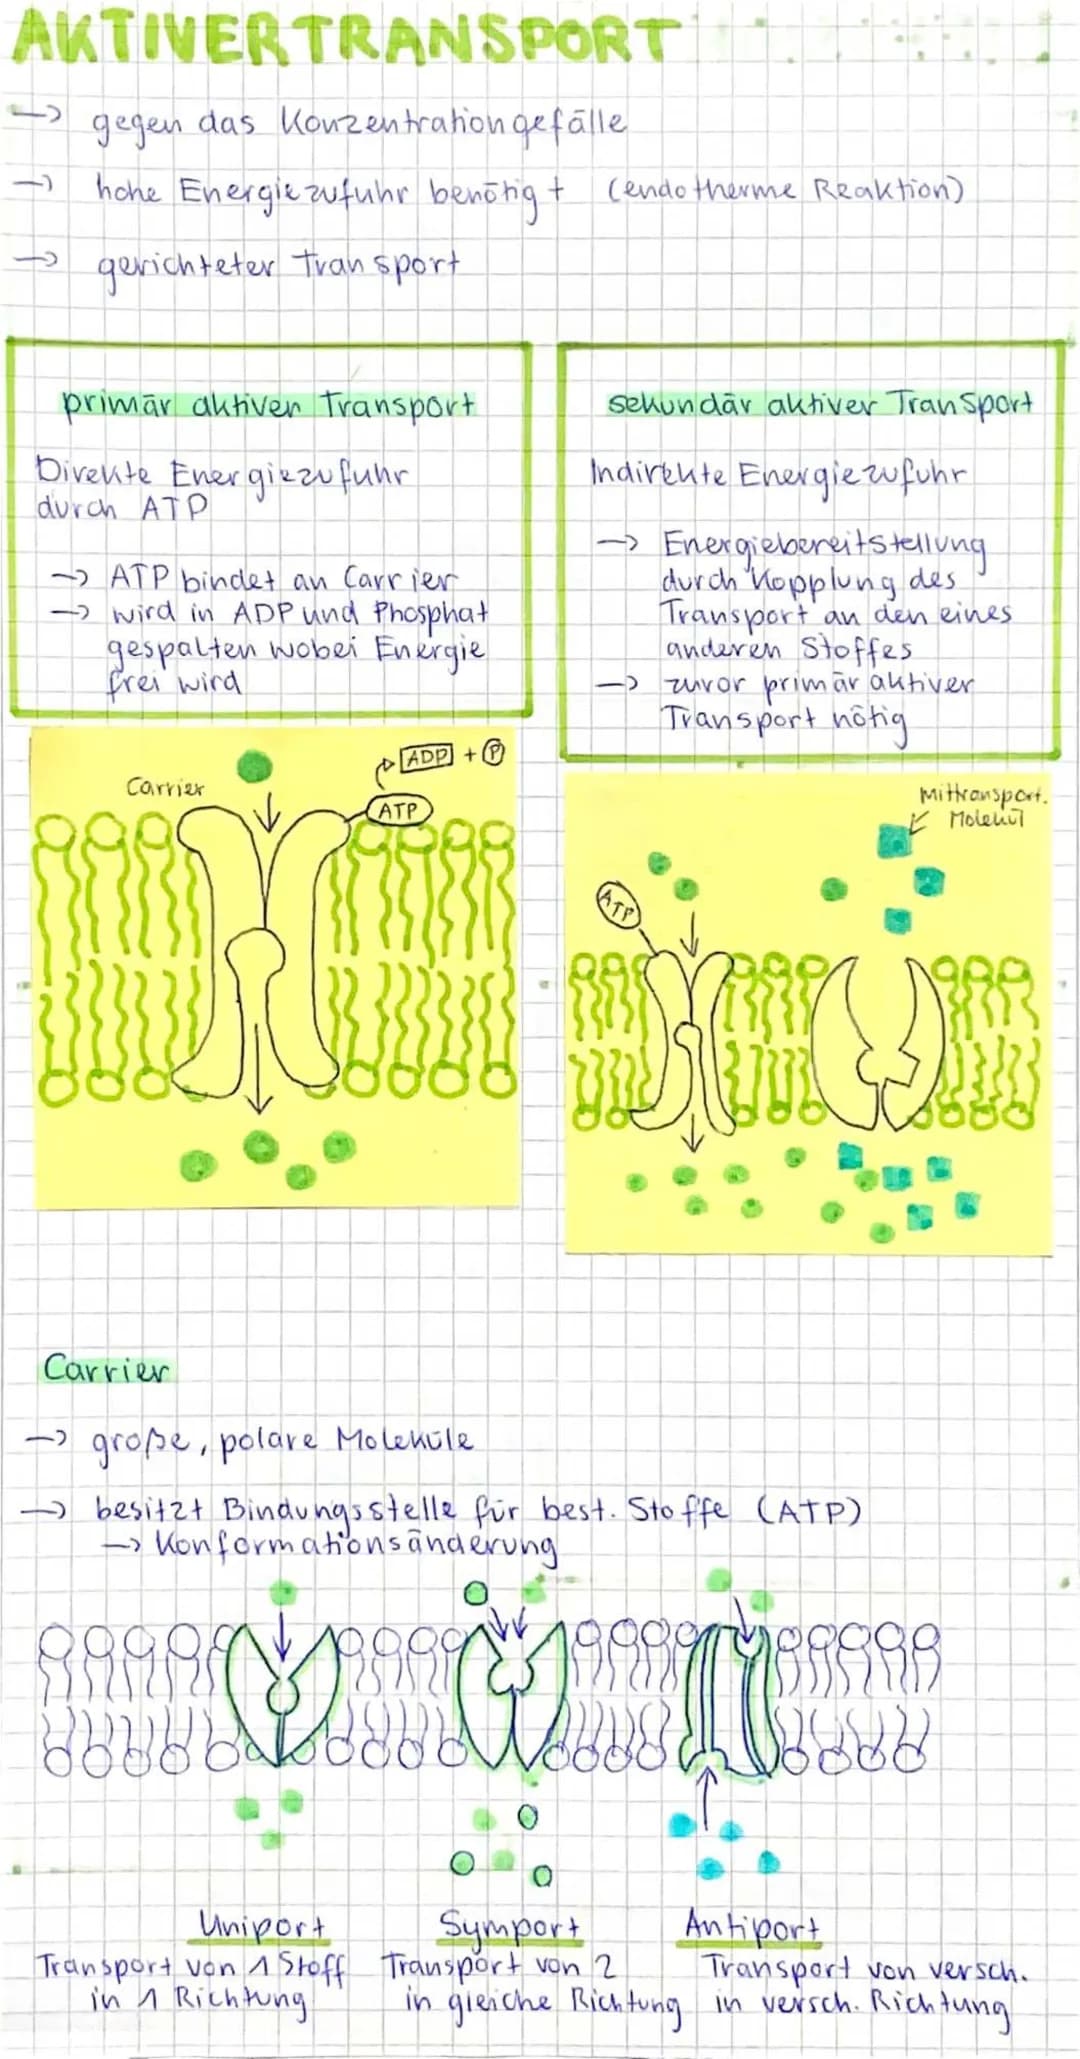 AKTIVER TRANSPORT
→ gegen das Konzentrationgefälle
→ hohe Energiezufuhr benötigt (endotherme Reaktion)
→ gerichteter Transport
primär aktiver Transport
Direkte Energiezufuhr
durch ATP
→ ATP bindet an Carrier
→ wird in ADP und Phosphat
gespalten wobei Energie
frei wird
sekundär aktiver Transport
Indirekte Energiezufuhr
→ Energiebereitstellung
durch Kopplung des
Transport an den eines
anderen Stoffes
→ zuvor primär aktiver
Transport nötig
Carrier
ADP + P
ATP
Mittransport.
Molekül
ATP
Carrier
→ große, polare Moleküle
→ besitzt Bindungsstelle für best. Stoffe (ATP)
→ Konformationsänderung
Uniport
Transport von 1 Stoff
in 1 Richtung
Symport
Transport von 2
in gleiche Richtung
Antiport
Transport von versch.
in versch. Richtung